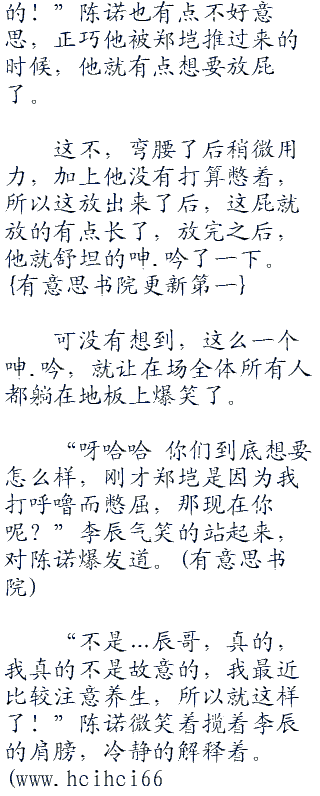 的！”陈诺也有点不好意
思，正巧他被郑垲推过来的
时候，他就有点想要放屁
了。
这不，弯腰了后稍微用
力，加上他没有打算憋着，
所以这放出来了后，这屁就
放的有点长了，放完之后，
他就舒坦的呻.吟了一下。
{有意思书院更新第一}
可没有想到，这么一个
呻.吟，就让在场全体所有人
都躺在地板上爆笑了。
“呀哈哈 你们到底想要
怎么样，刚才郑垲是因为我
打呼噜而憋屈，那现在你
呢？”李辰气笑的站起来，
对陈诺爆发道。(有意思书
院)
“不是...辰哥，真的，
我真的不是故意的，我最近
比较注意养生，所以就这样
了！”陈诺微笑着揽着李辰
的肩膀，冷静的解释着。
(www.hcihci66